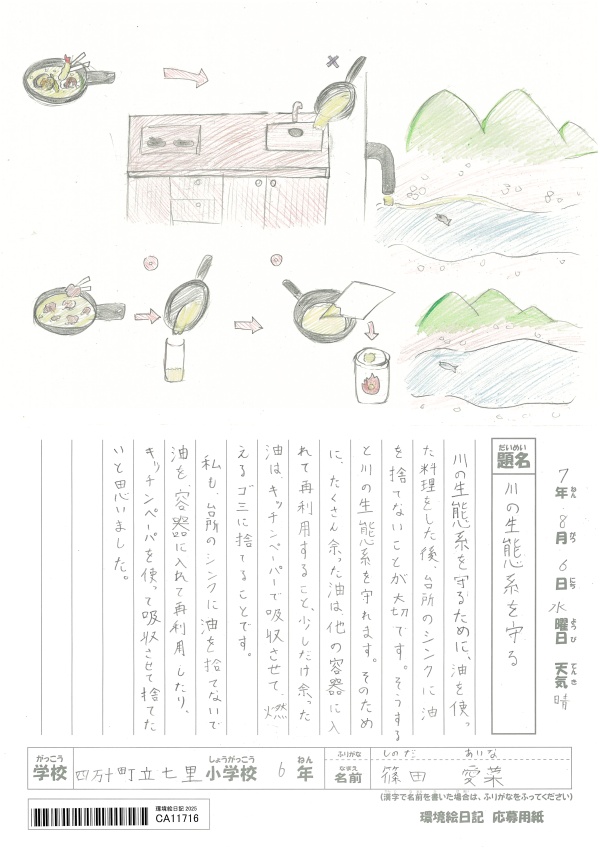 7年8月6日水曜日 天気晴
ねん がつ にち ようび てんき
だいめい
題名
川の生態系を守る
川の生態系を守るために、油を使っ
た料理をした後、台所のシンクに油
を捨てないことが大切です。そうする
と川の生態系を守れます。そのため
に、たくさん余った油は他の容器に入
れて再利用すること、少しだけ余った
油は、キッチンペーパーで吸収させて、燃
えるゴミに捨てることです。
私も、台所のシンクに油を捨てないで
油を、容器に入れて再利用したり、
キッチンペーパを使って吸収させて捨てた
いと思いました。
がっこう しょうがっこう ねん
学校 四万十町立七里 小学校 6年
ふりがな しのだ あいな
なまえ
名前 篠田 愛菜
(漢字で名前を書いた場合は、ふりがなをふってください)
環境絵日記 2025
CA11716
環境絵日記 応募用紙